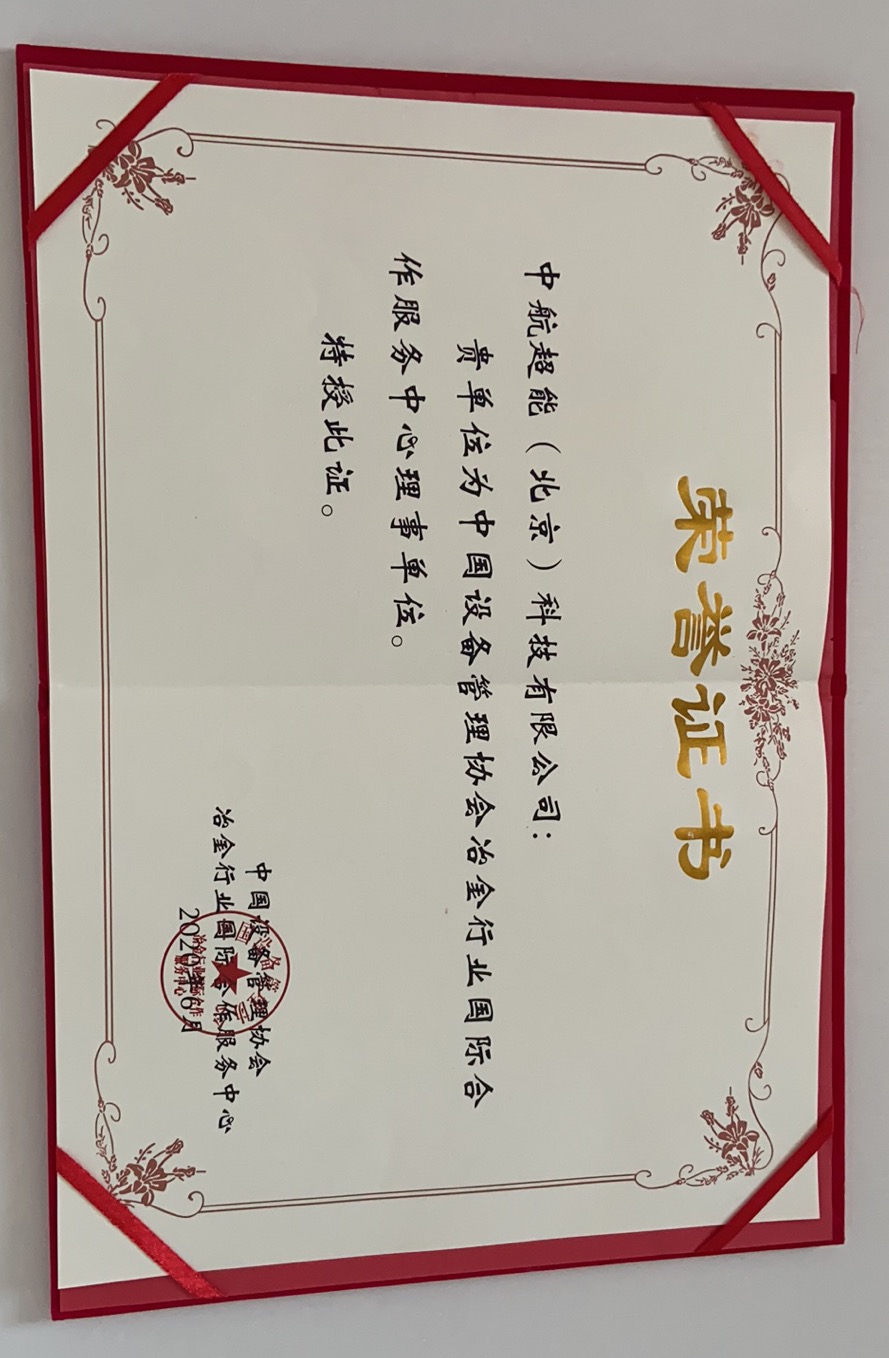 荣誉证书
中航超能（北京）科技有限公司：
贵单位为中国设备管理协会冶金行业国际合
作服务中心理事单位。
特授此证。
中国设备管理协会
冶金行业国际合作服务中心
2020年6月